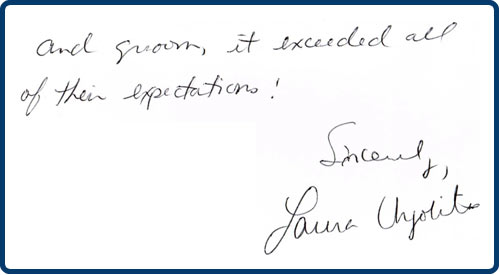 and groom, it exceeded all
of their expectations!
Sincerely,
Laura